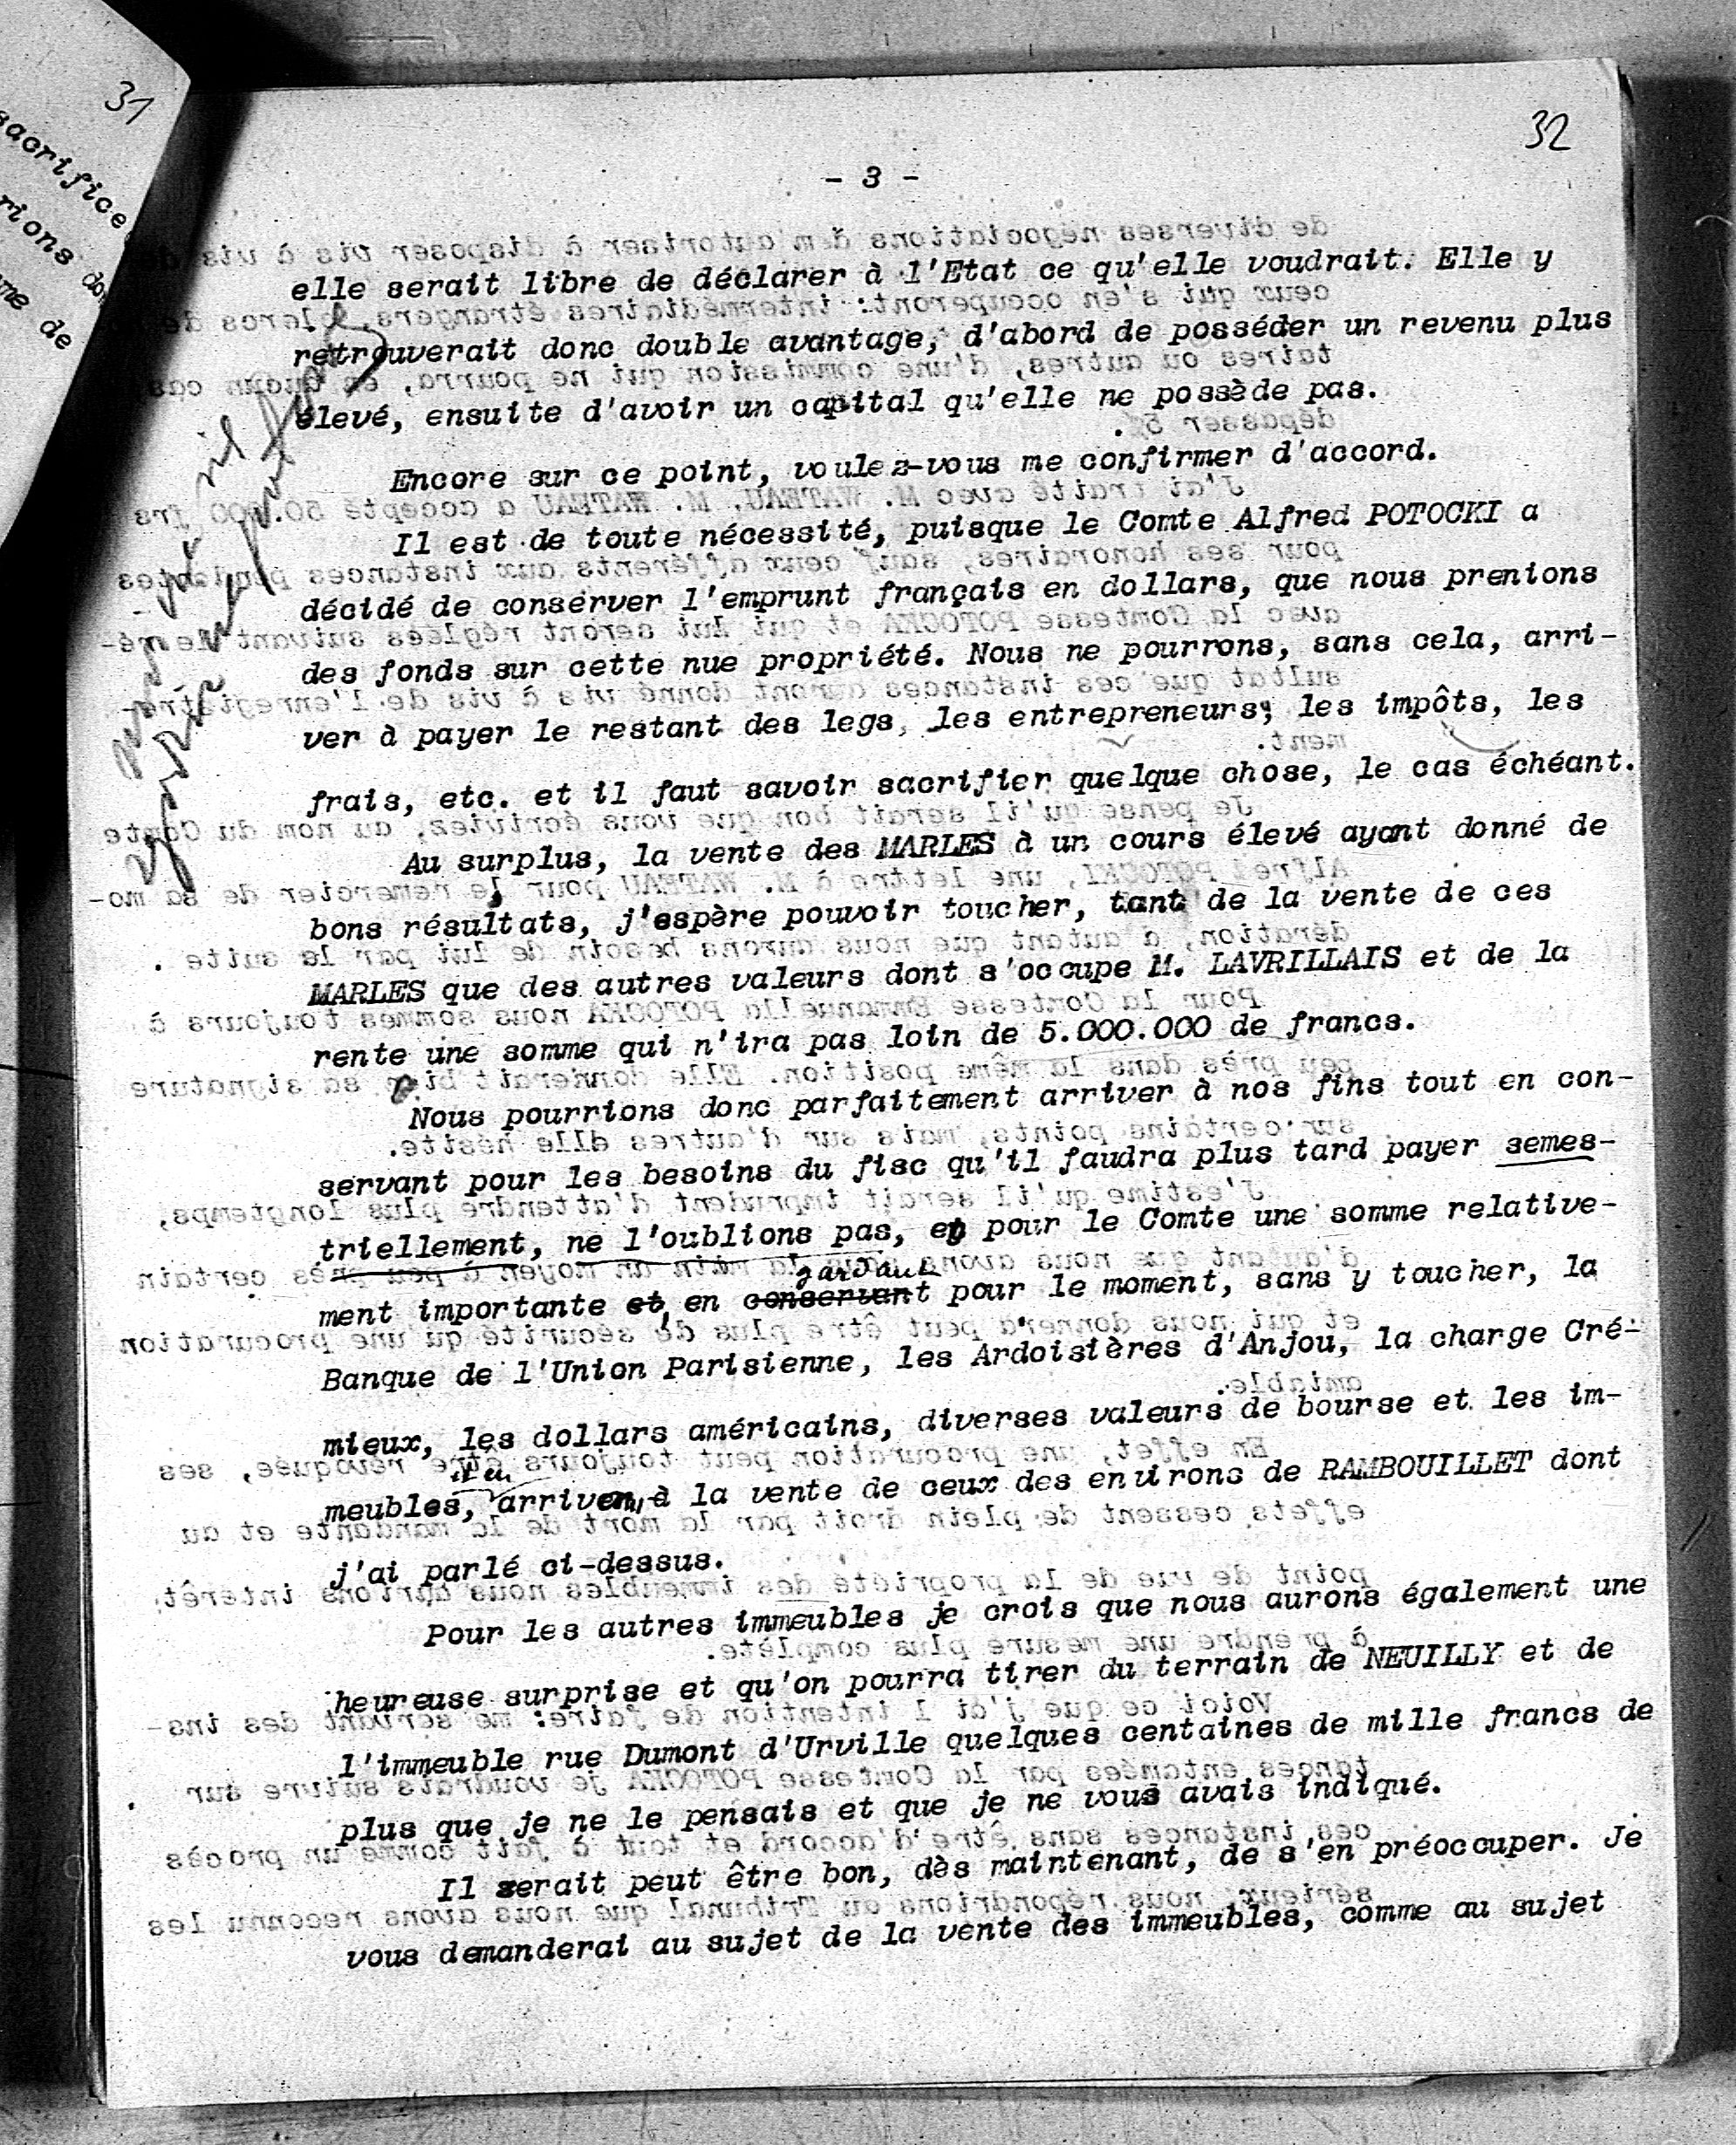 31
sacrifice
rions don
me de
32
- 3 -
elle serait libre de déclarer à l'Etat ce qu'elle voudrait. Elle y
retrouverait donc double avantage, d'abord de posséder un revenu plus
élevé, ensuite d'avoir un capital qu'elle ne possède pas.
Encore sur ce point, voulez-vous me confirmer d'accord.
Il est de toute nécessité, puisque le Comte Alfred POTOCKI a
décidé de conserver l'emprunt français en dollars, que nous prenions
des fonds sur cette nue propriété. Nous ne pourrons, sans cela, arri-
ver à payer le restant des legs, les entrepreneurs, les impôts, les
frais, etc. et il faut savoir sacrifier quelque chose, le cas échéant.
Au surplus, la vente des MARLES à un cours élevé ayant donné de
bons résultats, j'espère pouvoir toucher, tant de la vente de ces
MARLES que des autres valeurs dont s'occupe M. LAVRILLAIS et de la
rente une somme qui n'ira pas loin de 5.000.000 de francs.
Nous pourrions donc parfaitement arriver à nos fins tout en con-
servant pour les besoins du fisc qu'il faudra plus tard payer semes-
triellement, ne l'oublions pas, et pour le Comte une somme relative-
gardant
ment importante et, en conservant pour le moment, sans y toucher, la
Banque de l'Union Parisienne, les Ardoisières d'Anjou, la charge Cré-
mieux, les dollars américains, diverses valeurs de bourse et les im-
meubles, arriver à la vente de ceux des environs de RAMBOUILLET dont
j'ai parlé ci-dessus.
Pour les autres immeubles je crois que nous aurons également une
heureuse surprise et qu'on pourra tirer du terrain de NEUILLY et de
l'immeuble rue Dumont d'Urville quelques centaines de mille francs de
plus que je ne le pensais et que je ne vous avais indiqué.
Il serait peut être bon, dès maintenant, de s'en préoccuper. Je
vous demanderai au sujet de la vente des immeubles, comme au sujet